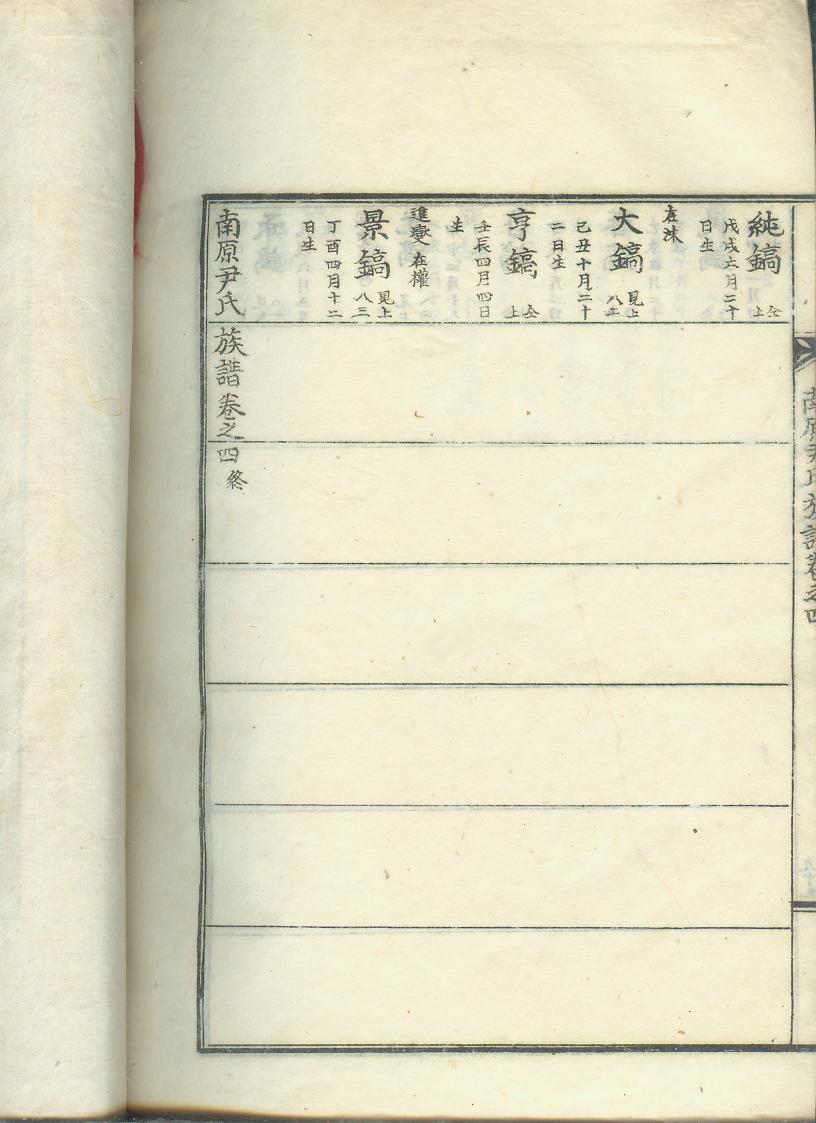 純鎬 仝上
戊戌六月二十
日生
在洙
大鎬 見上八二
己丑十月二十
二日生
亨鎬 仝上
壬辰四月四日
生
進燮 在權
景鎬 見上八三
丁酉四月十二
日生
南原尹氏族譜卷之四 終
南原尹氏族譜卷之四